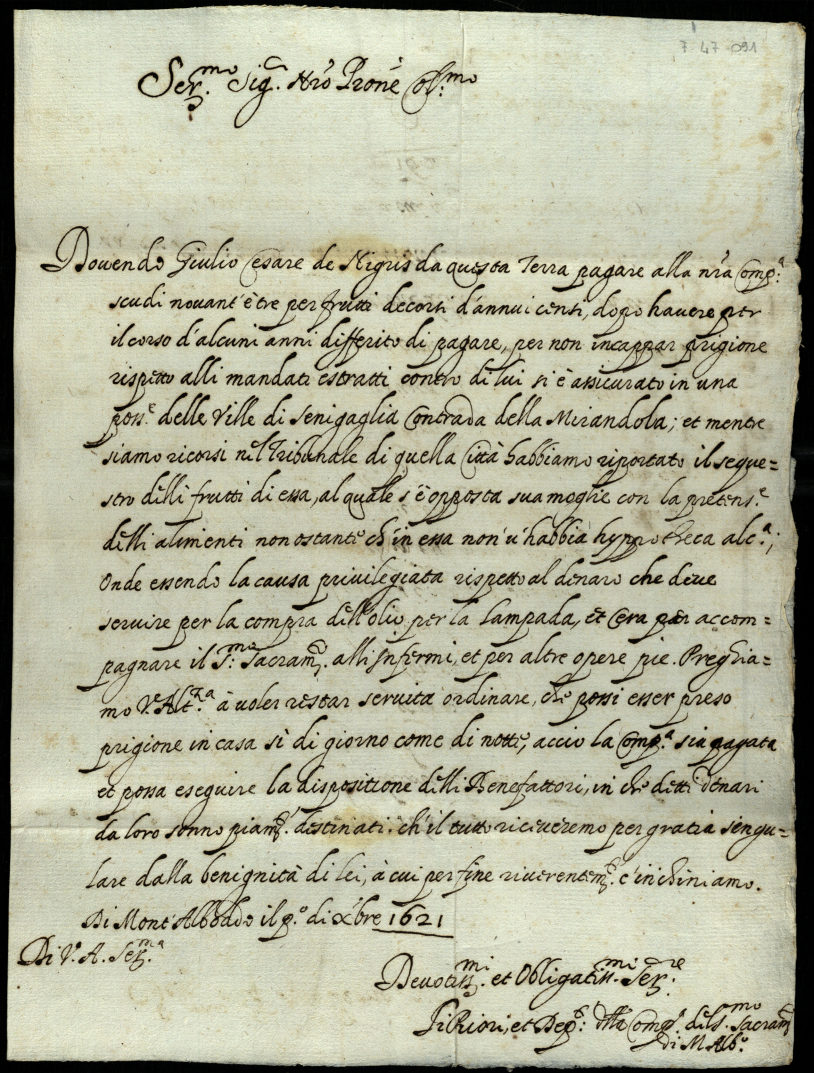 7 47 091
Ser.mo Sig.r Nr̃o Prone Oss.mo
Douendo Giulio Cesare de Nigris da questa Terra pagare alla nr̃a Comp.a
scudi nouant'è tre per frutti decorsi d'annui censi, dopo hauere per
il corso d'alcuni anni differito di pagare, per non incappar prigione
rispetto alli mandati estratti contro di lui si è assicurato in una
poss.e delle Ville di Senigaglia Contrada della Mirandola; et mentre
siamo ricorsi nel Tribunale di quella Città habbiamo riportato il seque=
stro delli frutti di essa, al quale s'è opposta sua moglie con la pretens.e
delli alimenti non ostante ch'in essa non u'habbia hyppotheca alc.a;
Onde essendo la causa priuilegiata rispetto al denaro che deue
seruire per la compra dell'olio per la Lampada, et Cera per accom=
pagnare il S.mo Sacram.to alli Infermi, et per altre opere pie. Preghia=
mo V.Alt.za à uoler restar seruita ordinare, che possi esser preso
prigione in casa sì di giorno come di notte, acciò la Comp.a sia pagata
et possa eseguire la dispositione delli Benefattori, in che detti denari
da loro sonno piam.te destinati. ch'il tutto riceueremo per gratia singu=
lare dalla benignità di lei, à cui per fine riuerentem.te c'inchiniamo.
Di Mont'Alboddo il p.o di Xbre 1621
Di V.A. Ser.ma
Deuotiss.mi et Obligatiss.mi Ser.re
Li Priori, et Dep.ti della Comp.a del S.mo Sacram.to
di M.Alb.o